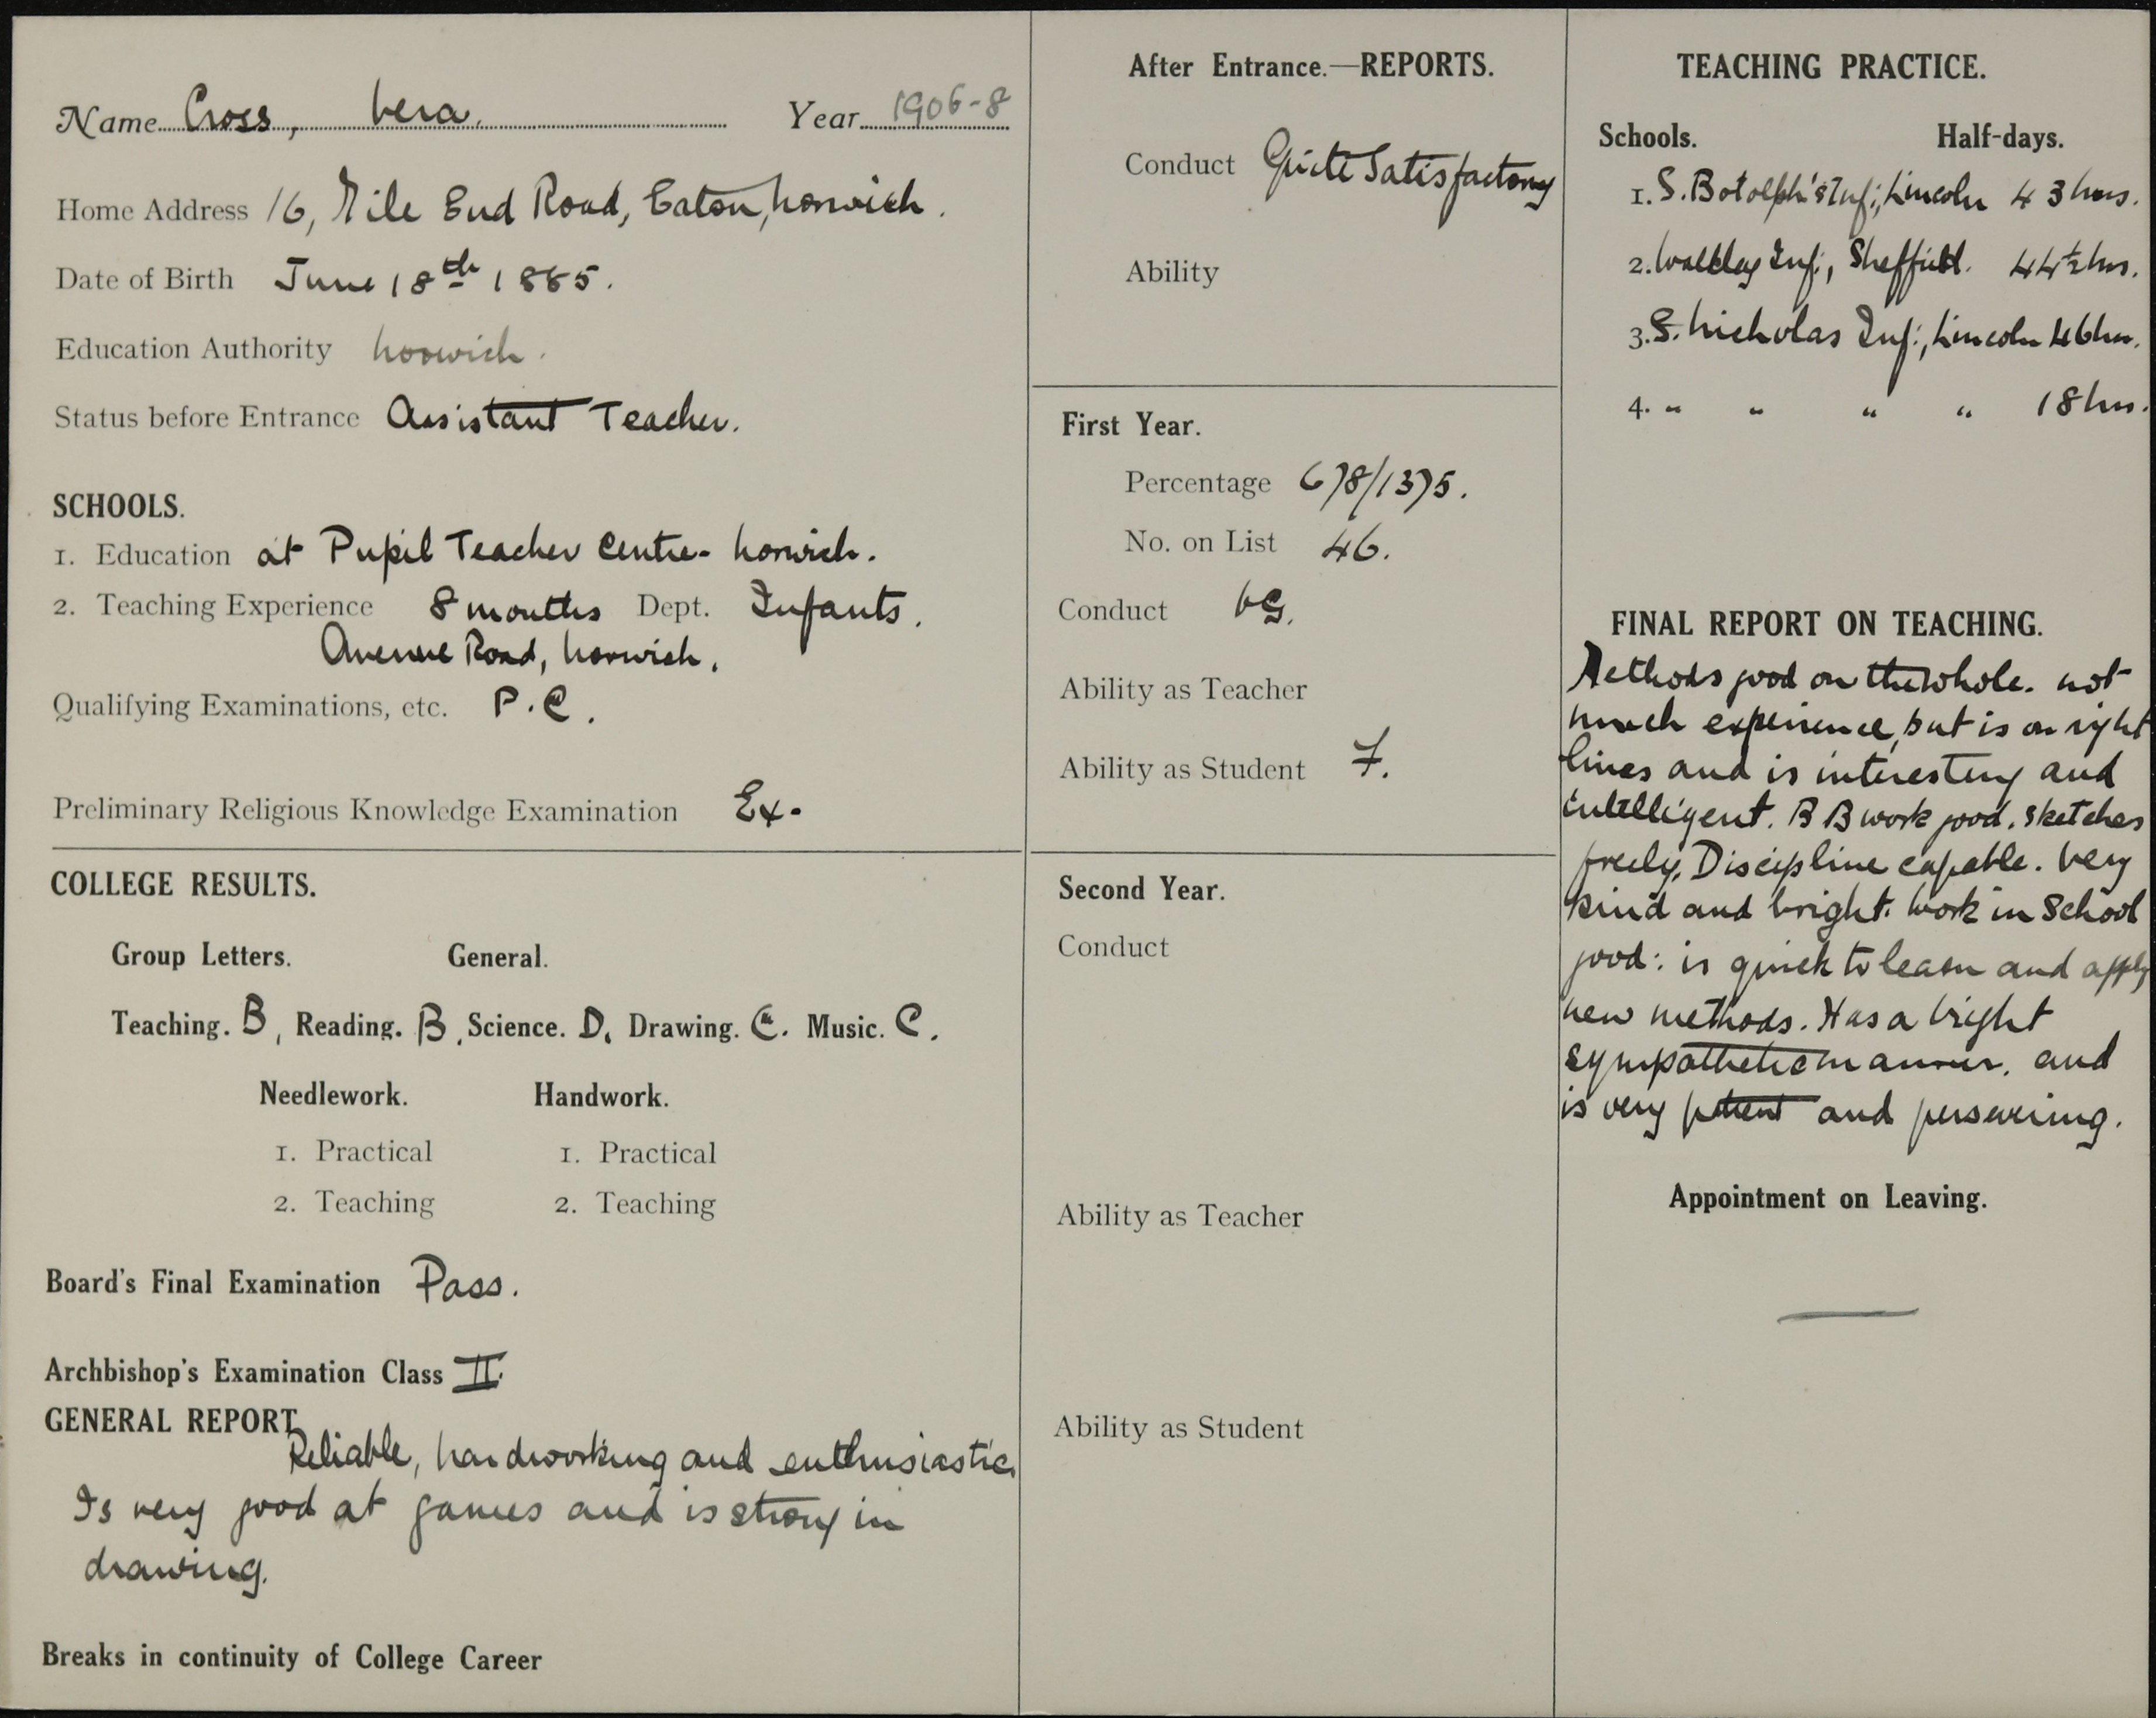 Name Cross, Vera. Year 1906-8
Home Address 16, Mile End Road, Eaton, Norwich.
Date of Birth June 18th 1885.
Education Authority Norwich.
Status before Entrance Assistant Teacher.
SCHOOLS.
1. Education at Pupil Teacher Centre - Norwich.
2. Teaching Experience 8 months Dept. Infants.
Avenue Road, Norwich.
Qualifying Examinations, etc. P.C.
Preliminary Religious Knowledge Examination Ex.
COLLEGE RESULTS.
Group Letters. General.
Teaching. B, Reading. B, Science. D. Drawing. C. Music. C.
Needlework. Handwork.
1. Practical 1. Practical
2. Teaching 2. Teaching
Board's Final Examination Pass.
Archbishop's Examination Class II.
GENERAL REPORT
Reliable, hardworking and enthusiastic.
Is very good at games and is strong in
drawing.
Breaks in continuity of College Career
After Entrance.—REPORTS.
Conduct Quite Satisfactory
Ability
First Year.
Percentage 678/1375.
No. on List 46.
Conduct VG.
Ability as Teacher
Ability as Student F.
Second Year.
Conduct
Ability as Teacher
Ability as Student
TEACHING PRACTICE.
Schools. Half-days.
1. S. Botolph's Inf:, Lincoln 43 hrs.
2. Walkley Inf:, Sheffield. 44½ hrs.
3. S. Nicholas Inf:, Lincoln 46 hrs.
4. " " " " 18 hrs.
FINAL REPORT ON TEACHING.
Methods good on the whole. Not
much experience, but is on right
lines and is interesting and
intelligent. B B work good. Sketches
freely. Discipline capable. Very
kind and bright. Work in School
good: is quick to learn and apply
new methods. Has a bright
sympathetic manner. and
is very patient and persevering.
Appointment on Leaving.
—